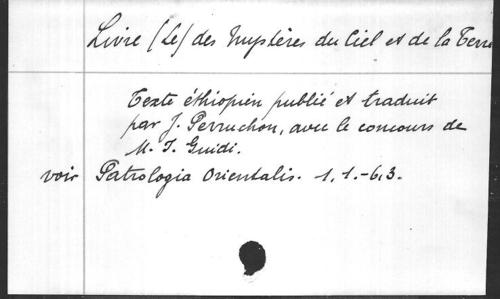 Livre (Le) des Mystères du Ciel et de la Terre
Texte éthiopien publié et traduit
par J. Perruchon, avec le concours de
M. I. Guidi.
voir Patrologia Orientalis. 1, 1.-6, 3.